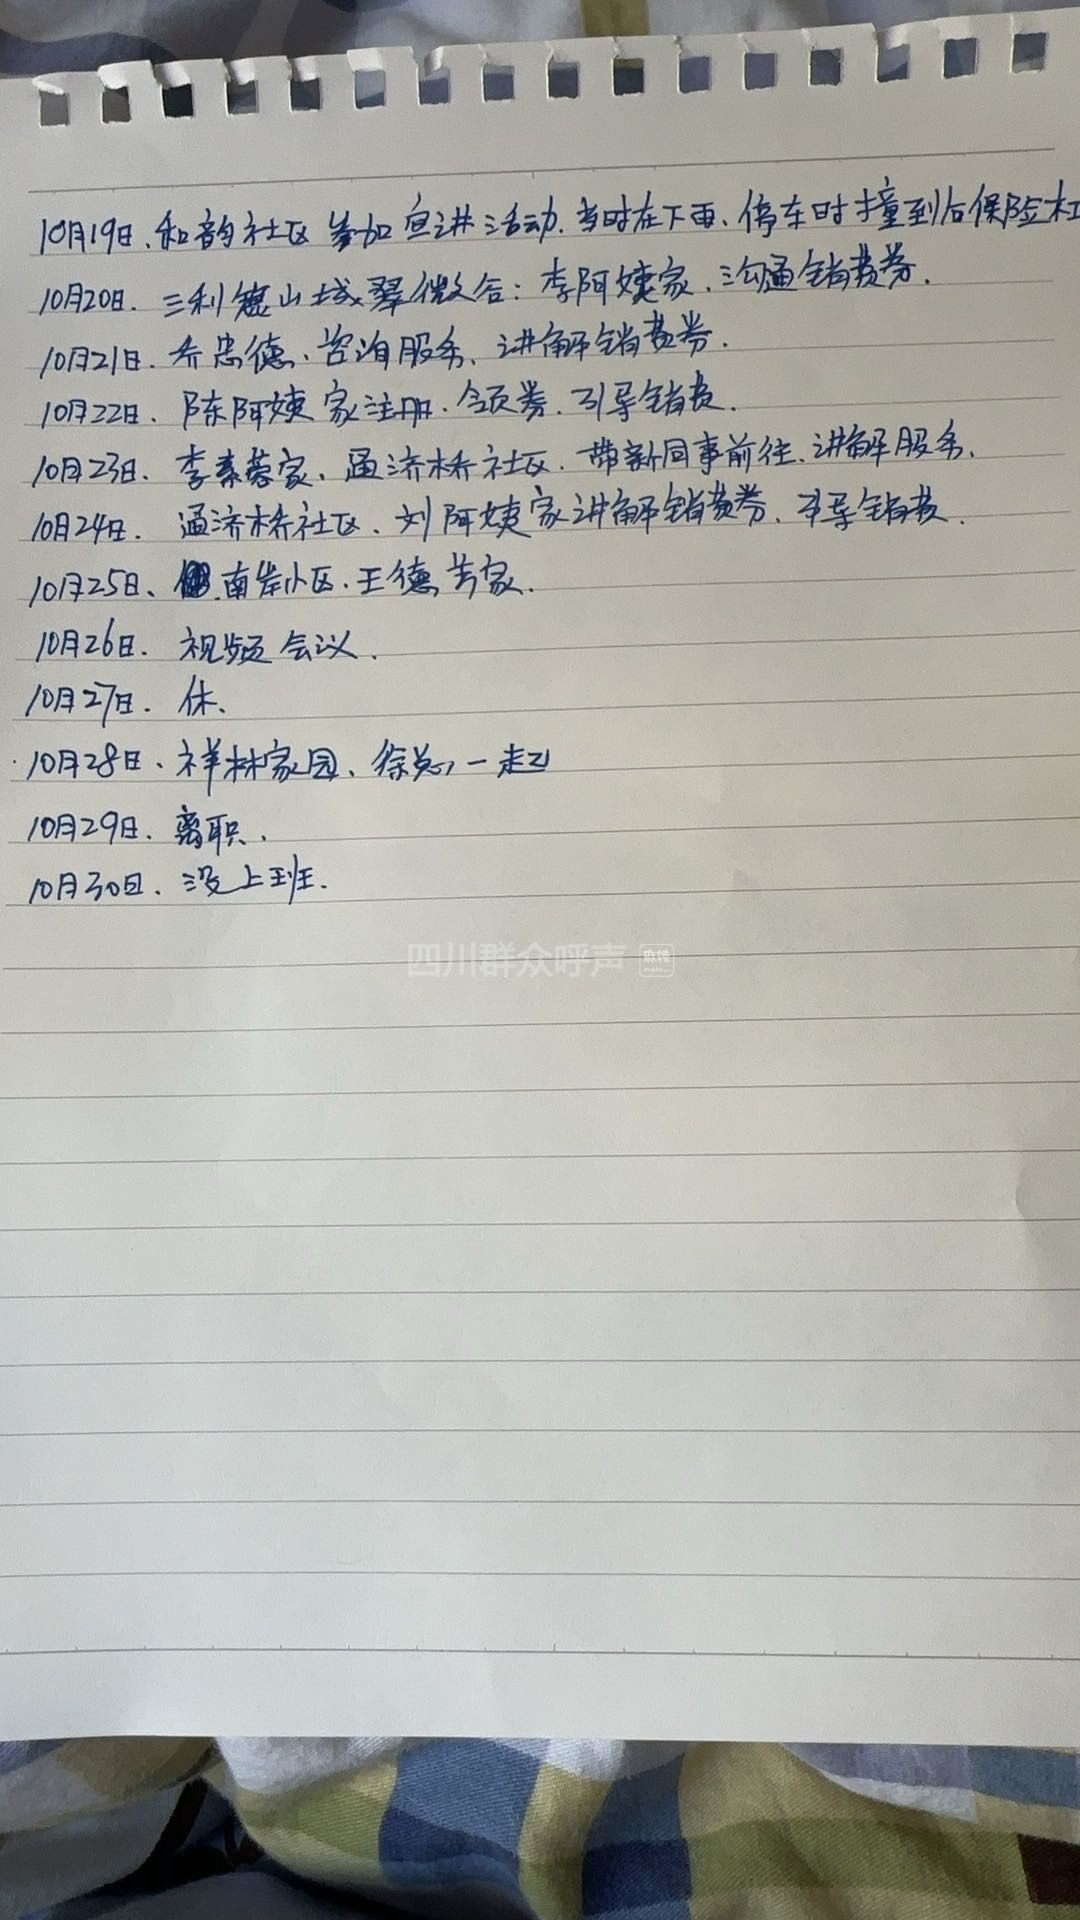 10月19日、和韵社区 参加宣讲活动.当时在下雨、停车时撞到后保险杠
10月20日. 三利 山城翠微台:李阿姨家.沟通销费券.
10月21日. 乔忠德、咨询服务、讲解销费券.
10月22日. 陈阿姨家注册.领券.引导销费.
10月23日. 李素蓉家、通济桥社区.带新同事前往、讲解服务.
10月24日. 通济桥社区、刘阿姨家讲解销费券.引导销费.
10月25日、南岸小区.王德芳家.
10月26日. 视频会议.
10月27日. 休、
10月28日、祥林家园、徐总一起
10月29日. 离职.
10月30日. 没上班.
四川群众呼声 麻辣